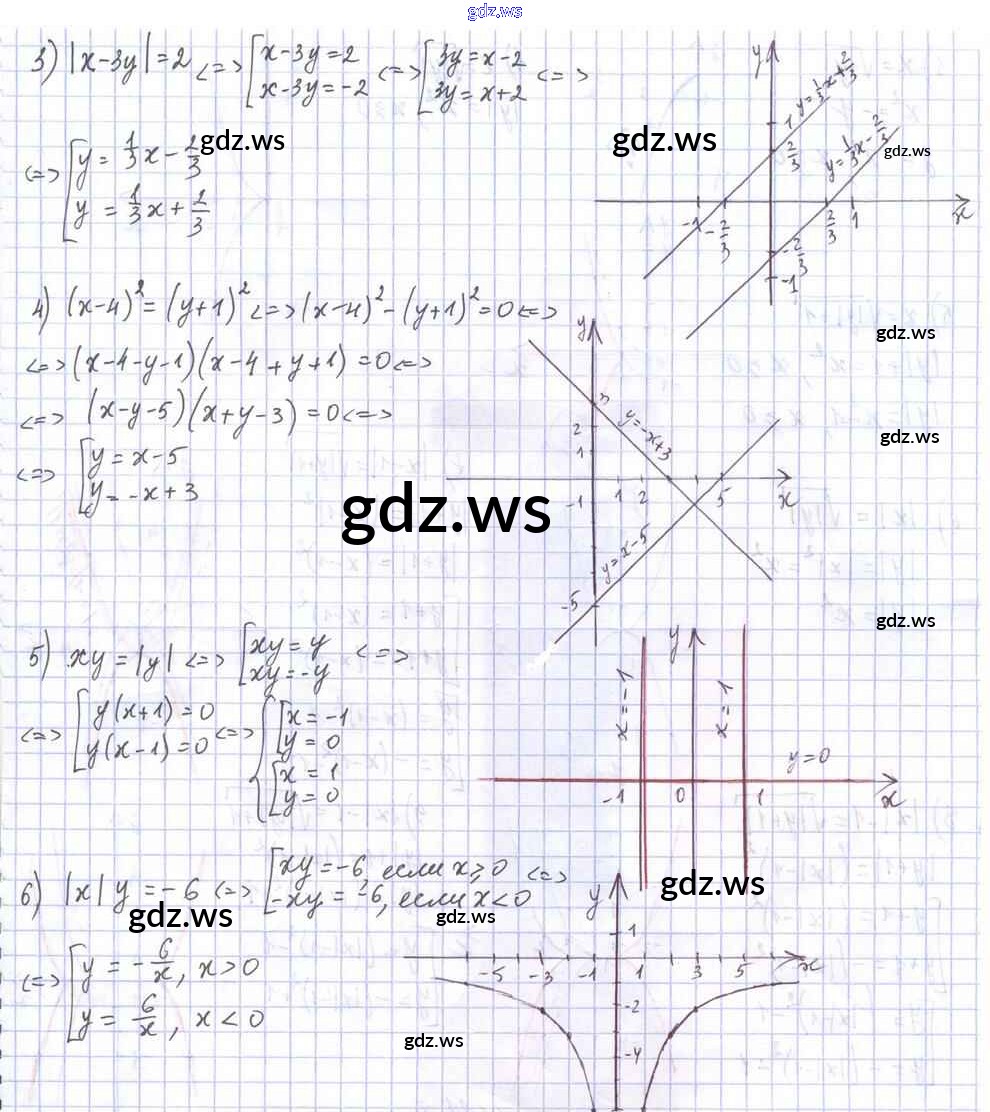 gdz.ws
3) |x-3y|=2 <=> [x-3y=2 <=> [3y=x-2 <=>
x-3y=-2 3y=x+2
<=> [y = 1/3 x - 2/3
y = 1/3 x + 2/3
gdz.ws
gdz.ws
gdz.ws
y
y=1/3x+2/3
y=1/3x-2/3
1
2/3
-1
-2/3
2/3
1
x
-2/3
-1
4) (x-4)²=(y+1)² <=> (x-4)²-(y+1)²=0 <=>
<=> (x-4-y-1)(x-4+y+1)=0 <=>
<=> (x-y-5)(x+y-3)=0 <=>
<=> [y=x-5
y=-x+3
gdz.ws
gdz.ws
gdz.ws
y
3
y=-x+3
2
1
-1
1
2
5
x
y=x-5
-5
gdz.ws
5) xy=|y| <=> [xy=y <=>
xy=-y
<=> [y(x+1)=0 <=> {[x=-1
y(x-1)=0 y=0
[x=1
y=0
y
x=-1
x=-1
y=0
-1
0
1
x
6) |x|y=-6 <=> [xy=-6, если x≥0 <=>
-xy=-6, если x<0
gdz.ws
gdz.ws
gdz.ws
<=> [y=-6/x, x>0
y=6/x, x<0
gdz.ws
y
1
-5
-3
-1
1
3
5
x
-2
-4